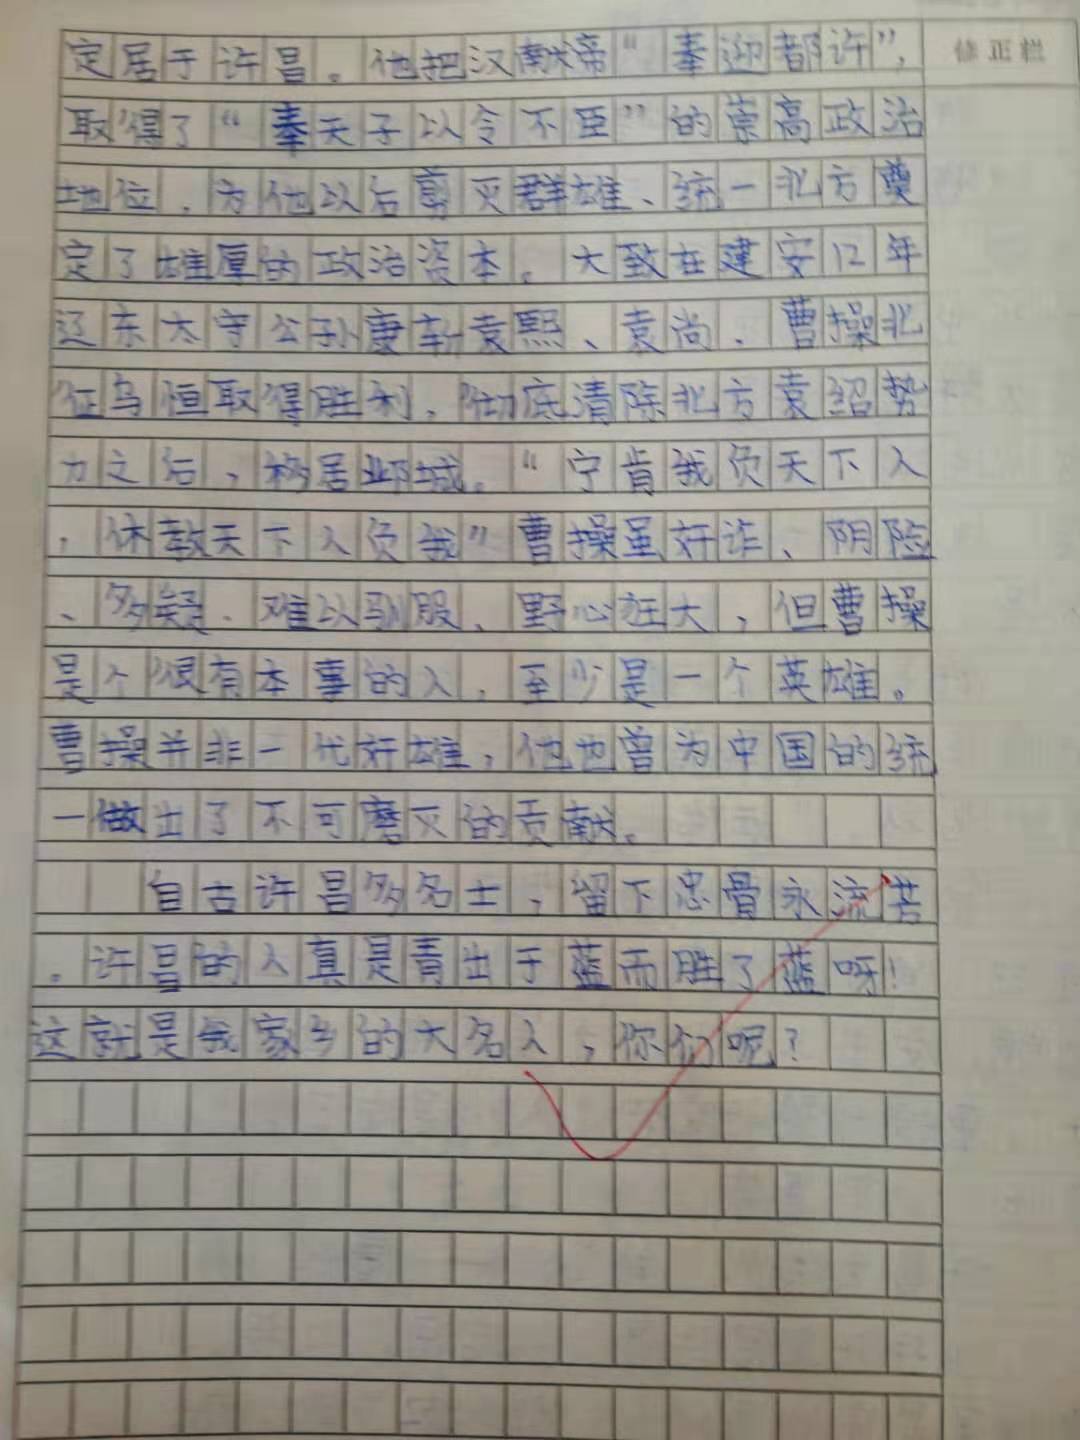 定居于许昌。他把汉献帝“奉迎都许”，
修正栏
取得了“奉天子以令不臣”的崇高政治
地位，为他以后剪灭群雄、统一北方奠
定了雄厚的政治资本。大致在建安12年
辽东太守公孙康斩袁熙、袁尚，曹操北
征乌恒取得胜利，彻底清除北方袁绍势
力之后，移居邺城。“宁肯我负天下人
，休教天下人负我”曹操虽奸诈、阴险
、多疑、难以驯服、野心狂大，但曹操
是个很有本事的人，至少是一个英雄。
曹操并非一代奸雄，他也曾为中国的统
一做出了不可磨灭的贡献。
自古许昌多名士，留下忠骨永流芳
。许昌的人真是青出于蓝而胜了蓝呀！
这就是我家乡的大名人，你们呢？